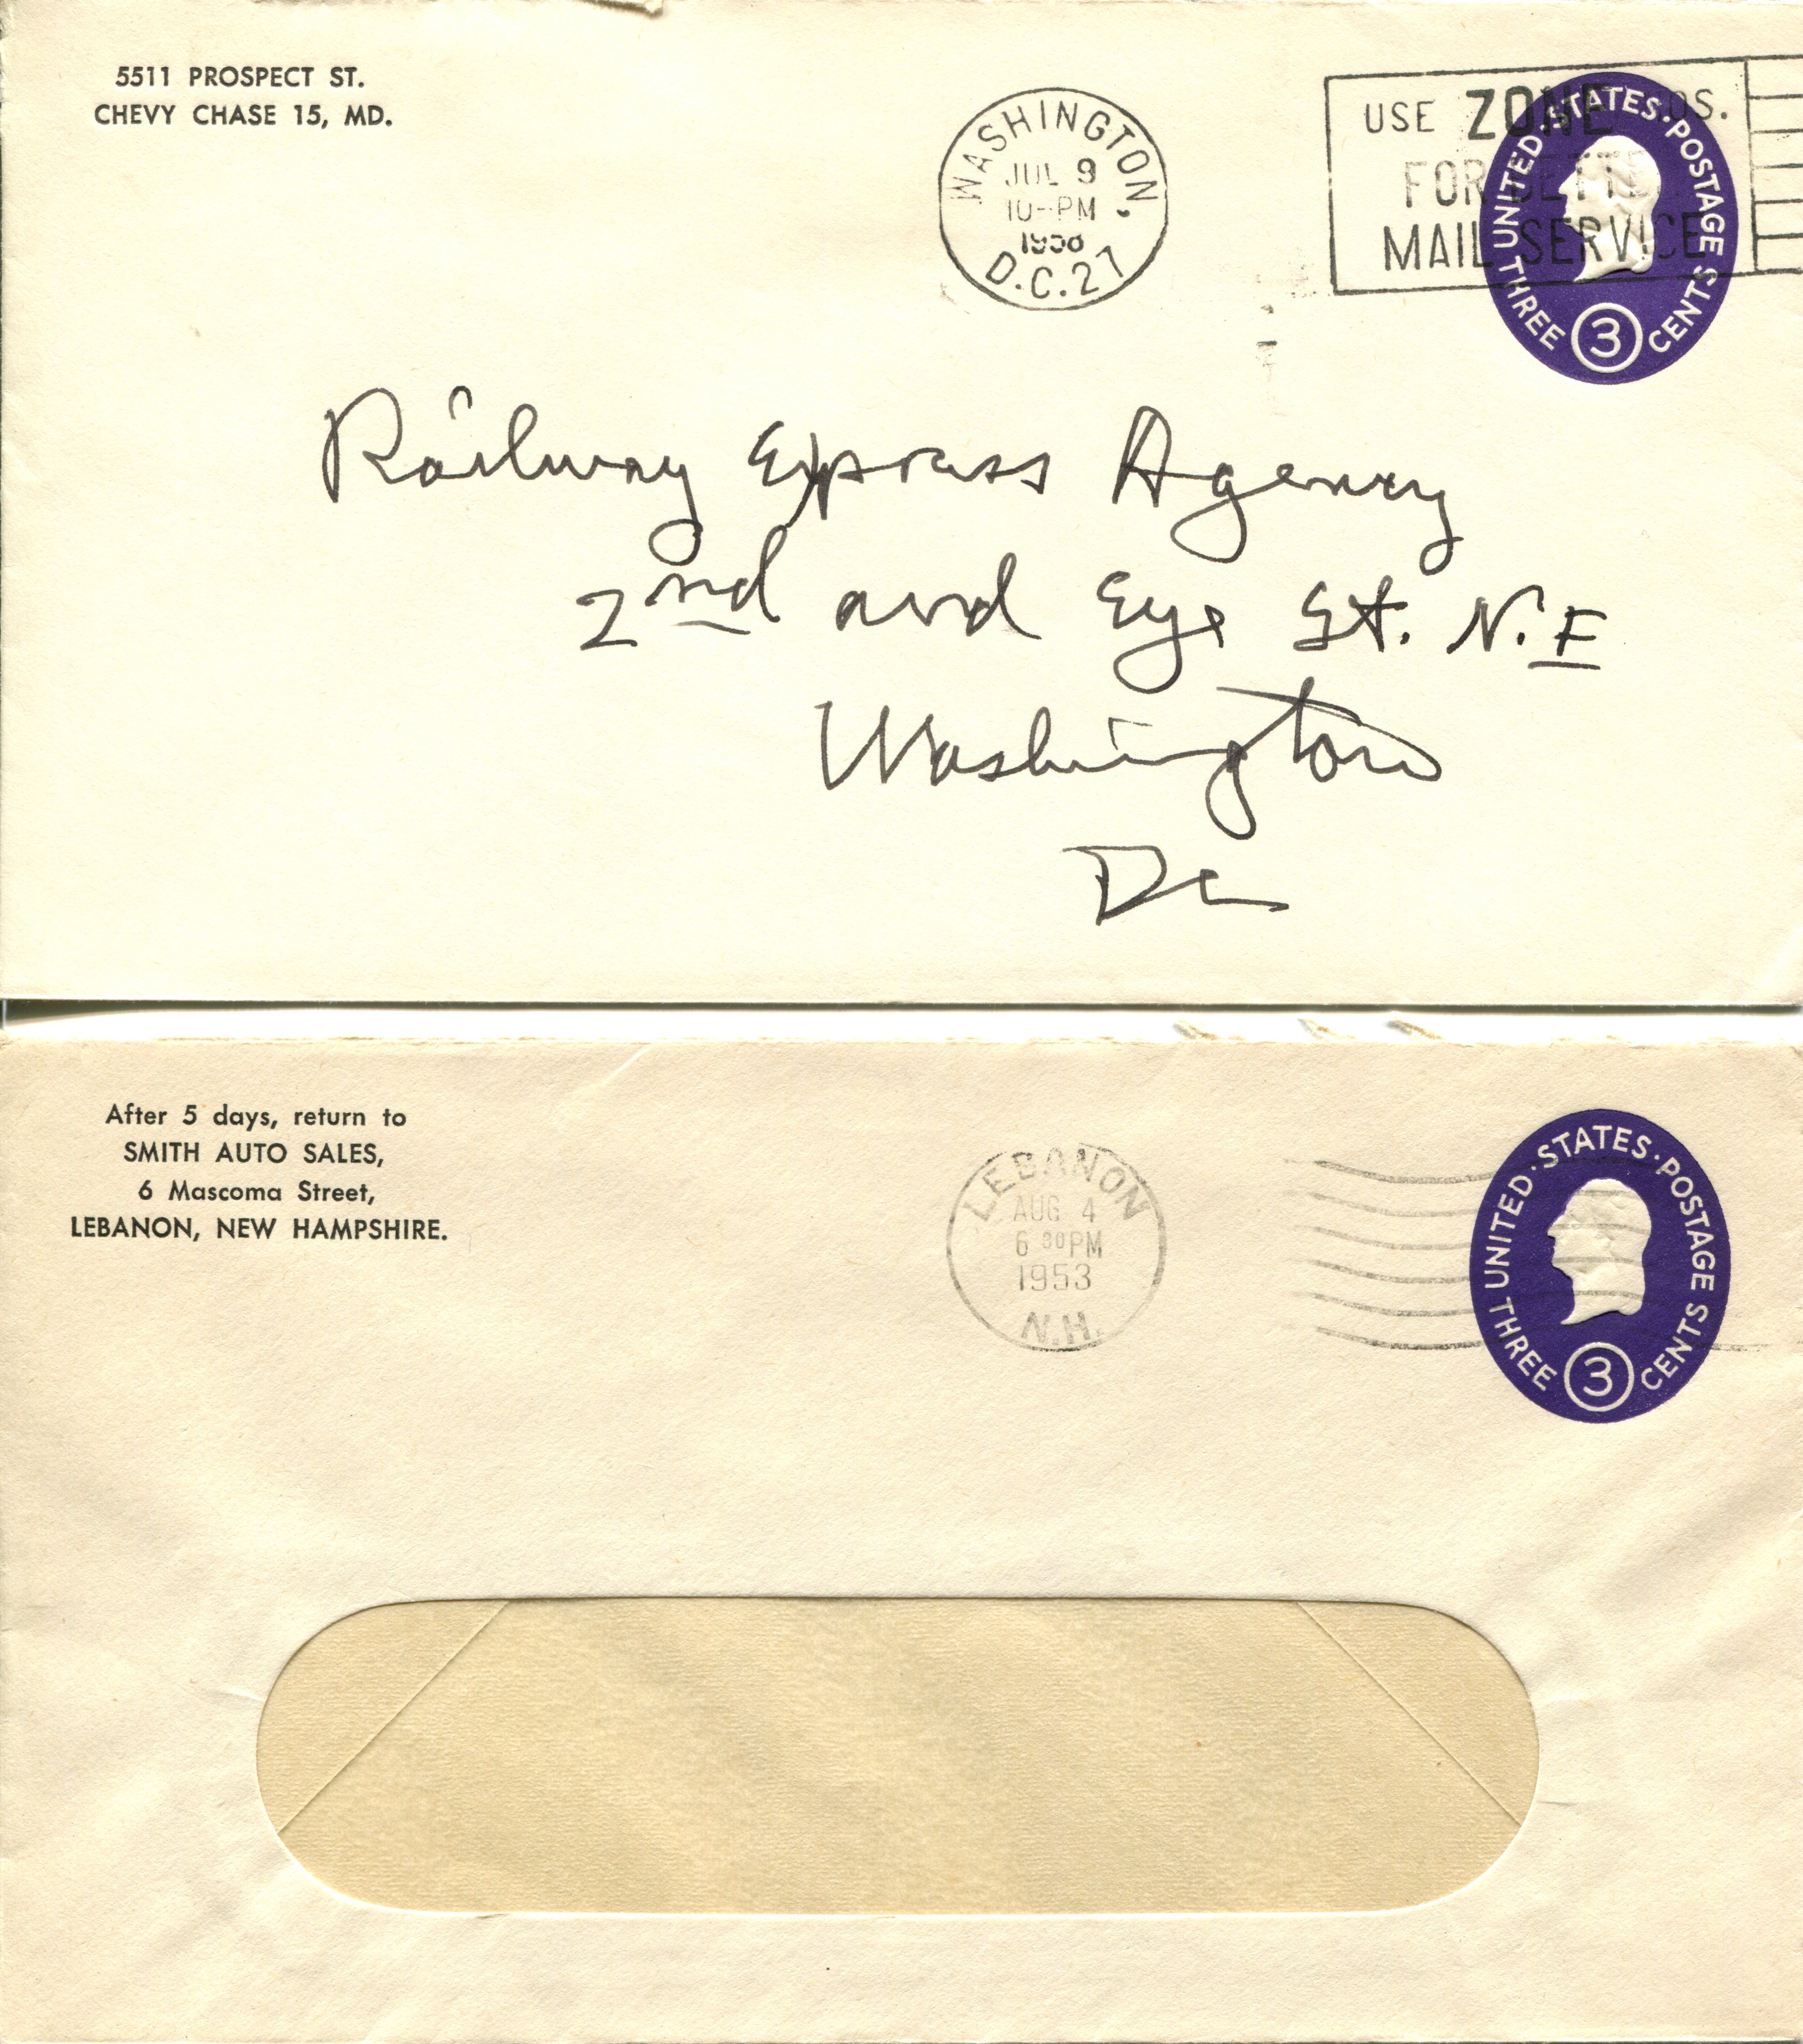 5511 PROSPECT ST.
CHEVY CHASE 15, MD.
WASHINGTON
JUL 9
10-PM
1958
D.C.27
USE ZONE NOS.
FOR BETTER
MAIL SERVICE
UNITED·STATES·POSTAGE
THREE 3 CENTS
Railway Express Agency
2nd and Eye St. N.E
Washington
DC
After 5 days, return to
SMITH AUTO SALES,
6 Mascoma Street,
LEBANON, NEW HAMPSHIRE.
LEBANON
AUG 4
6 30PM
1953
N.H.
UNITED·STATES·POSTAGE
THREE 3 CENTS